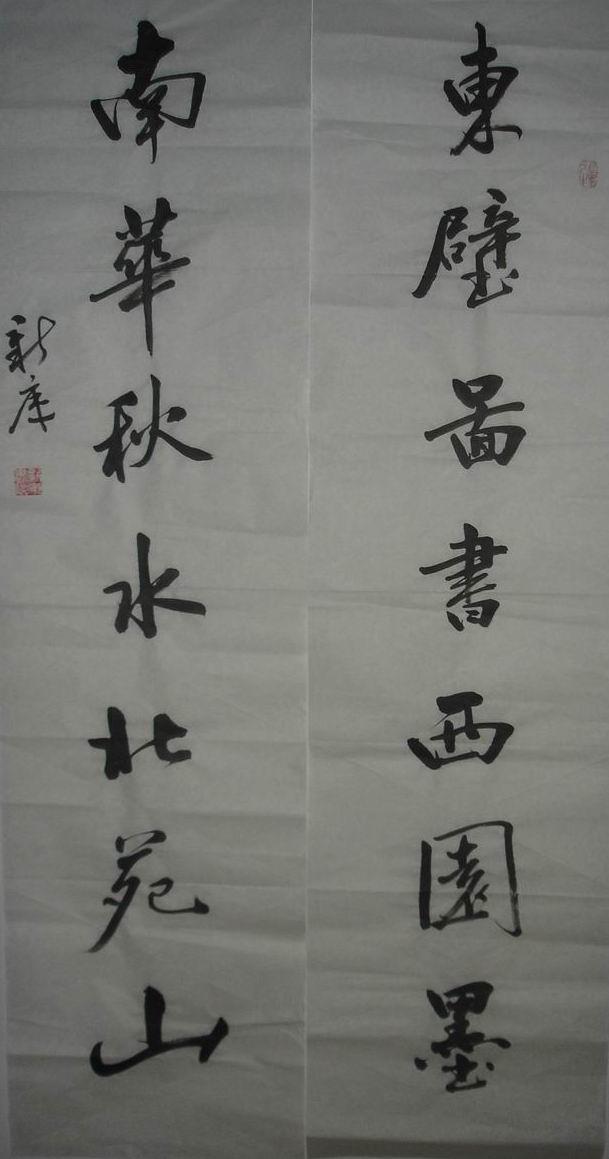 東壁圖書西園墨
南華秋水北苑山
新庫